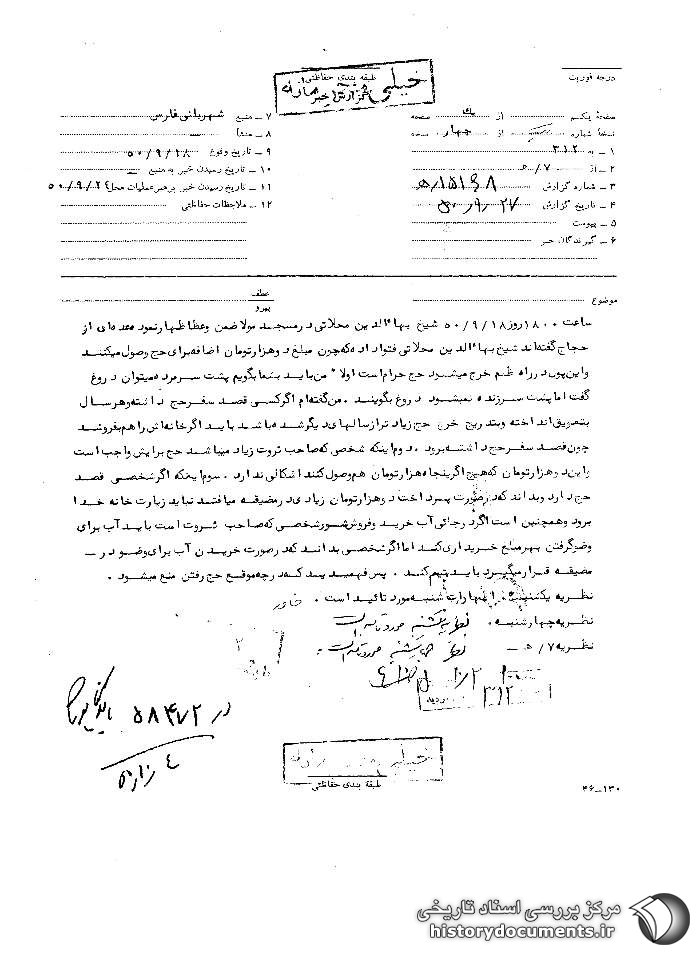 درجه فوریت
طبقه بندی حفاظتی
خیلی محرمانه
گزارش خبر
صفحه یکم از یک صفحه
نسخه شماره از چهار نسخه
۱ ـ به ۳۱۲
۲ ـ از ۷/ هـ
۳ ـ شماره گزارش
۴ ـ تاریخ گزارش ۵۰/۹/۲۷
۵ ـ پیوست
۶ ـ گیرندگان خبر
۷ ـ منبع شهربانی فارس
۸ ـ منشأ
۹ ـ تاریخ وقوع ۵۰/۹/۱۸
۱۰ ـ تاریخ رسیدن خبر به منبع
۱۱ ـ تاریخ رسیدن خبر برهبر عملیات محل ۵۰/۹/۲۴
۱۲ ـ ملاحظات حفاظتی
موضوع
عطف
پیرو
ساعت ۱۸۰۰ روز ۵۰/۹/۱۸ شیخ بهاءالدین محلاتی درمسجد مولا ضمن وعظ اظهارنمود عده ای از
حجاج گفته اند شیخ بهاءالدین محلاتی فتوا داده که چون مبلغ دوهزارتومان اضافه برای حج وصول میکنند
و این پول در راه ظلم خرج میشود حج حرام است اولا" من باید بشما بگویم پشت سرمرده میتوان دروغ
گفت اما پشت سرزنده نمیشود دروغ بگویند . من گفته ام اگرکسی قصد سفرحج داشته وهرسال
بتعویق انداخته وبتدریج خرج حج زیادترازسالهای دیگرشده باشد باید اگرخانه اش راهم بفروشد
چون قصد سفرحج داشته برود . دوم اینکه شخصی که صاحب ثروت زیاد میباشد حج برایش واجب است
و این دوهزارتومان که هیچ اگرپنجاه هزارتومان هم وصول کنند اشکالی ندارد . سوم اینکه اگرشخصی قصد
حج دارد وبداند که درصورت پرداخت دوهزارتومان زیادی درمضیقه میافتد نباید زیارت خانه خدا
برود وهمچنین است اگردرجائی آب خرید وفروش شود شخصی که صاحب ثروت است باید آب برای
وضوگرفتن بهرمبلغ خریداری کند اما اگرشخصی بداند که درصورت خریدن آب برای وضو در ـ
مضیقه قرارمیگیرد باید تیمم کند . پس فهمیدید که درچه موقع حج رفتن منع میشود .
نظریه یکشنبه . اظهارات شنبه مورد تائید است . خاور
نظریه چهارشنبه . نظریه یکشنبه مورد تائید است
نظریه ۷/ هـ ـ نظریه چهارشنبه مورد تائید است .
۳۱۲
در ۵۸۴۷۲ بایگانی
خیلی محرمانه
طبقه بندی حفاظتی
۴۶ـ۱۳۰
مرکز بررسی اسناد تاریخی
historydocuments.ir